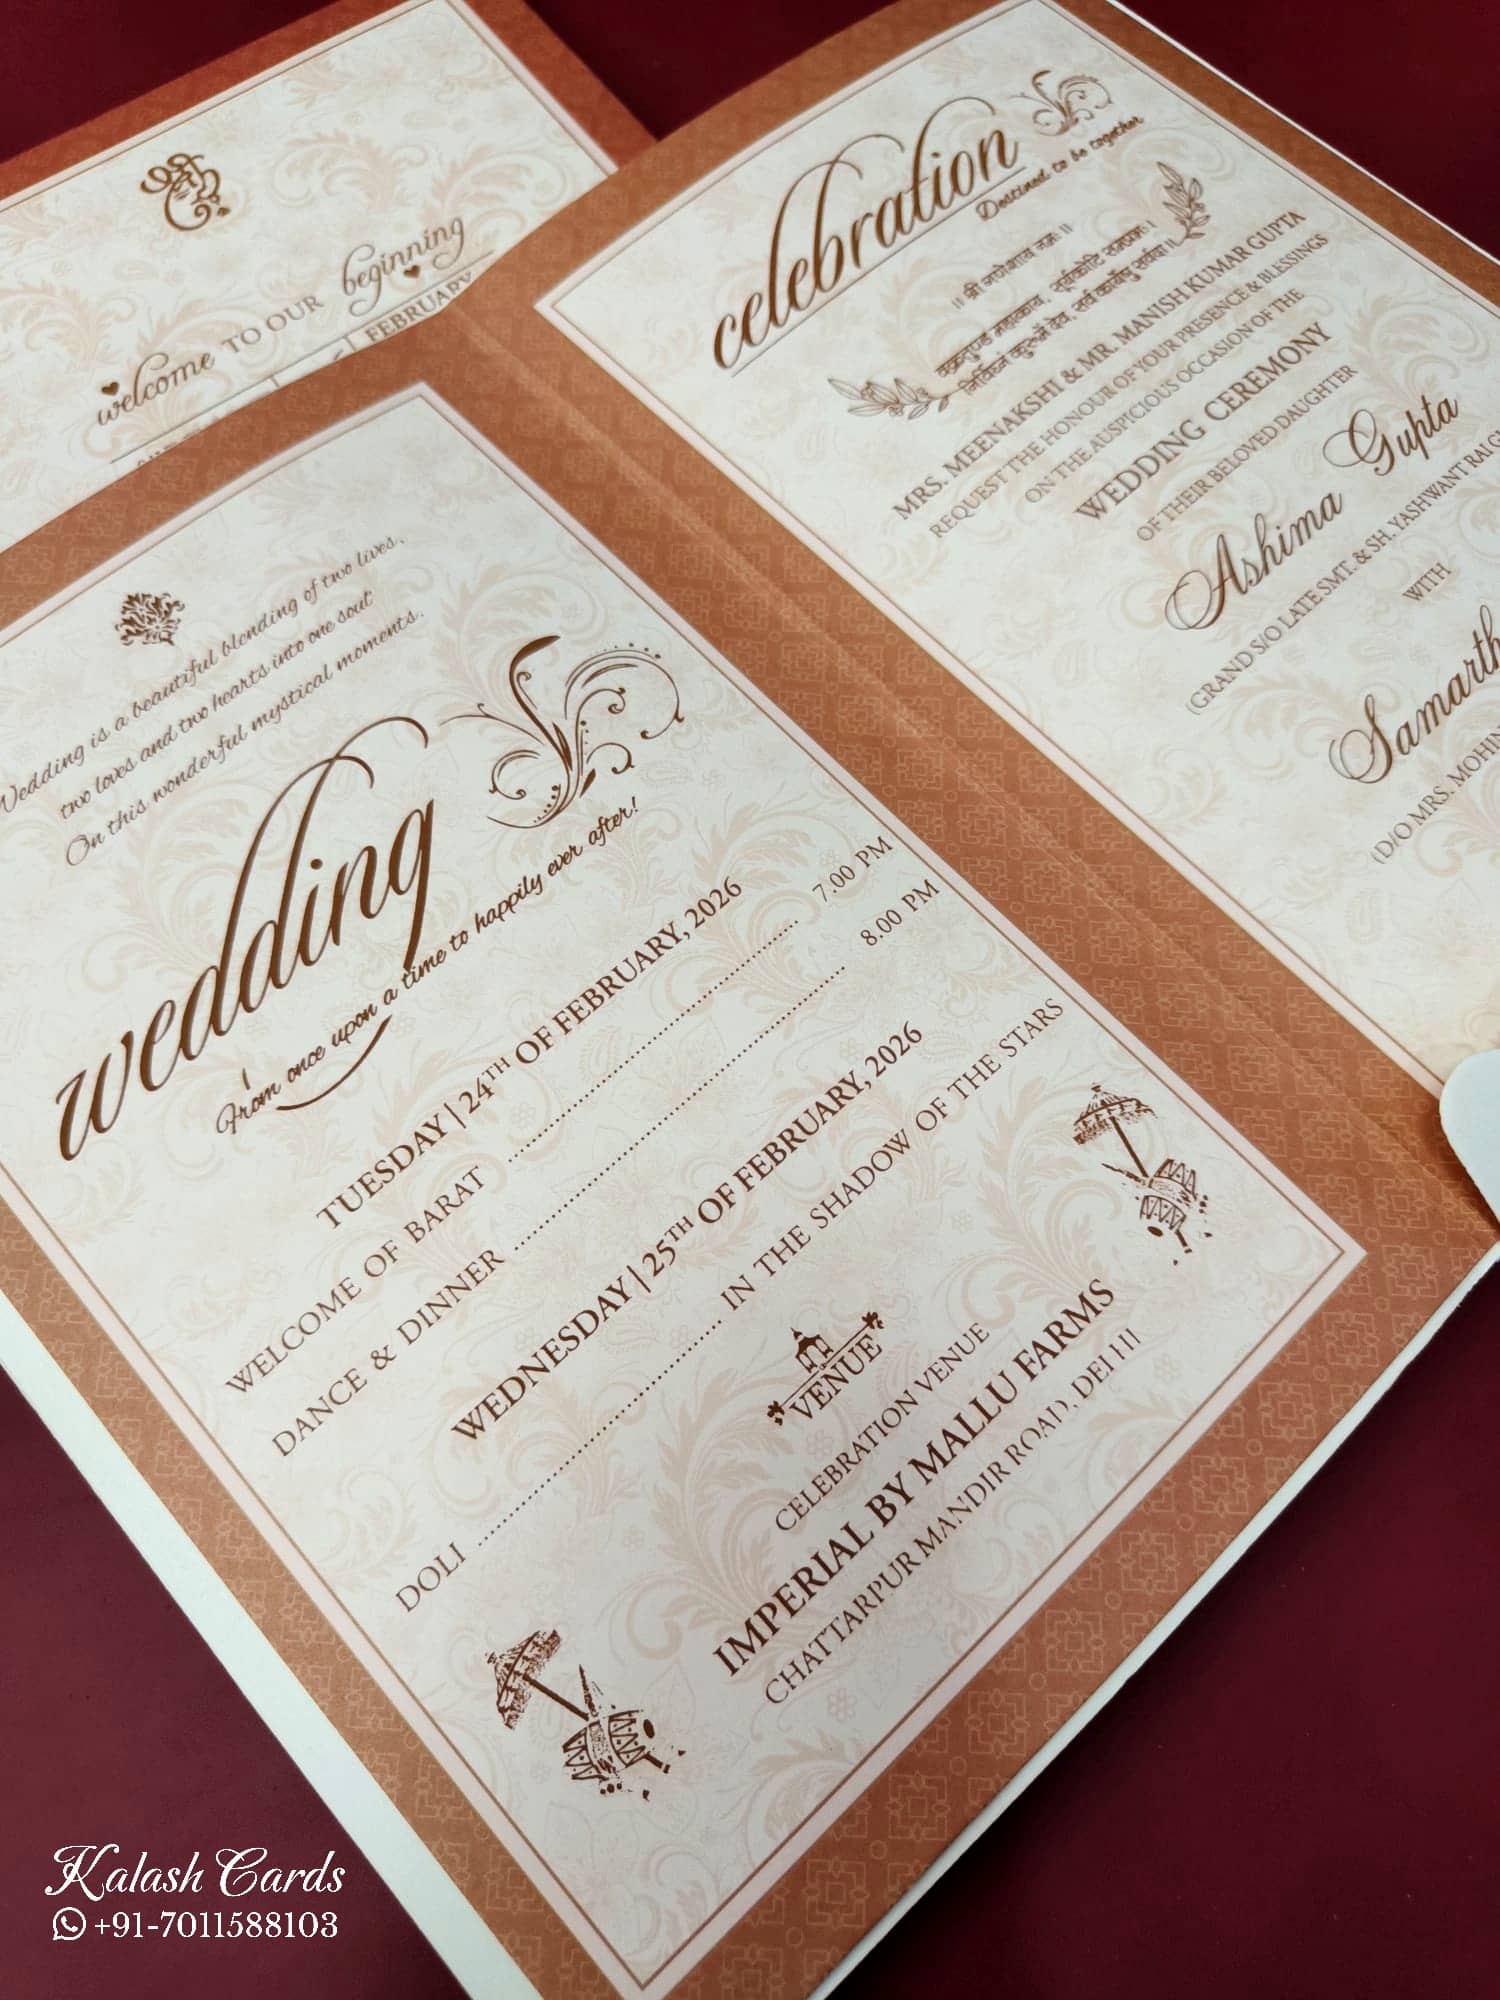 welcome TO OUR beginning
FEBRUARY
celebration
Destined to be together
॥ श्री गणेशाय नमः ॥
वक्रतुण्ड महाकाय, सूर्यकोटि समप्रभः।
निर्विघ्नं कुरुमे देव, सर्व कार्येषु सर्वदा॥
MRS. MEENAKSHI & MR. MANISH KUMAR GUPTA
REQUEST THE HONOUR OF YOUR PRESENCE & BLESSINGS
ON THE AUSPICIOUS OCCASION OF THE
WEDDING CEREMONY
OF THEIR BELOVED DAUGHTER
Ashima Gupta
(GRAND S/O LATE SMT. & SH. YASHWANT RAI
WITH
Samarth
(D/O MRS. MOHIN
Wedding is a beautiful blending of two lives,
two loves and two hearts into one soul
On this wonderful mystical moments.
wedding
From once upon a time to happily ever after!
TUESDAY | 24TH OF FEBRUARY, 2026
WELCOME OF BARAT ........ 7.00 PM
DANCE & DINNER ........ 8.00 PM
WEDNESDAY | 25TH OF FEBRUARY, 2026
DOLI ........ IN THE SHADOW OF THE STARS
VENUE
CELEBRATION VENUE
IMPERIAL BY MALLU FARMS
CHATTARPUR MANDIR ROAD, DELHI
Kalash Cards
+91-7011588103